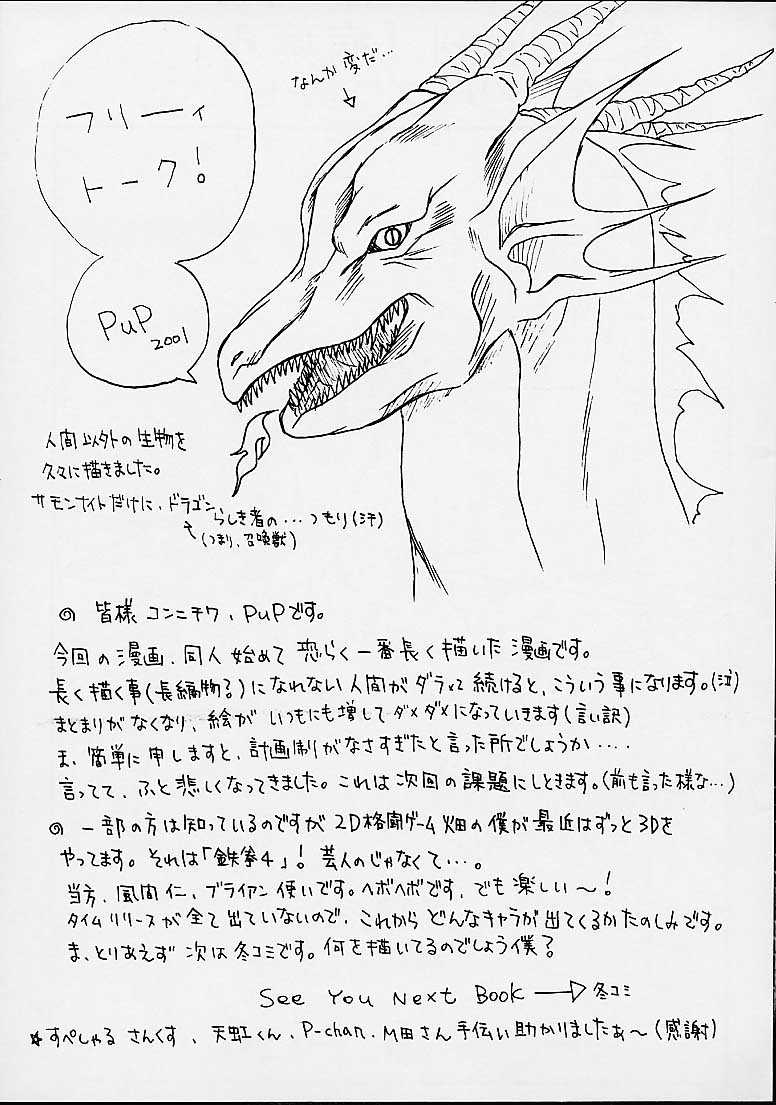 フリーィ
トーク!
PuP
2001
なんか変だ…
人間以外の生物を
久々に描きました。
サモンナイトだけに、ドラゴン
らしき者の…つもり(汗)
(つまり、召喚獣)
皆様 コンニチワ、PuPです。
今回の漫画、同人始めて 恐らく一番長く描いた漫画です。
長く描く事(長編物?)になれない人間がダラダラ続けると、こういう事になります。(泣)
まとまりがなくなり、絵が いつもにも増してダメダメになっていきます(言い訳)
ま、簡単に申しますと、計画制がなさすぎたと言った所でしょうか‥‥
言ってて、ふと悲しくなってきました。これは次回の課題にしときます。(前も言った様な…)
一部の方は知っているのですが 2D格闘ゲーム畑の僕が最近はずっと3Dを
やってます。それは「鉄拳4」! 芸人のじゃなくて…。
当方、風間仁、ブライアン使いです。ヘボヘボです、でも楽しい〜!
タイムリリースが全て出ていないので、これからどんなキャラが出てくるかたのしみです。
ま、とりあえず 次は冬コミです。何を描いてるのでしょう僕?
See You Next Book → 冬コミ
☆すぺしゃる さんくす、天虹くん、P-chan、M田さん 手伝い助かりましたぁ〜(感謝)